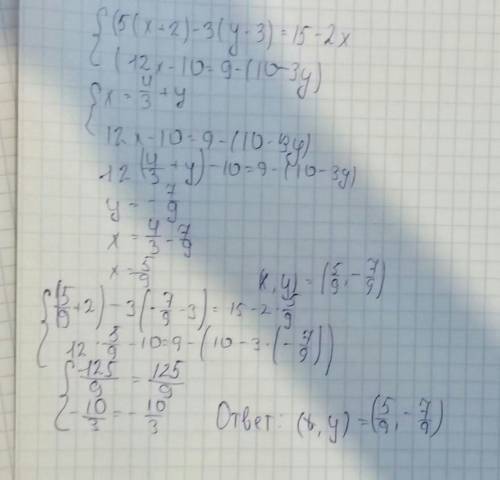 {(5(x+2)-3(y-3)=15-2x
(12x-10=9-(10-3y)
{x=4/3+y
12x-10=9-(10-3y)
12(4/3+y)-10=9-(10-3y)
y=-7/9
x=4/3-7/9
x=5/9 (x,y)=(5/9,-7/9)
{(5/9+2)-3(-7/9-3)=15-2·5/9
12·5/9-10=9-(10-3·(-7/9))
{125/9=125/9
-10/3=-10/3 Ответ: (x,y)=(5/9,-7/9)